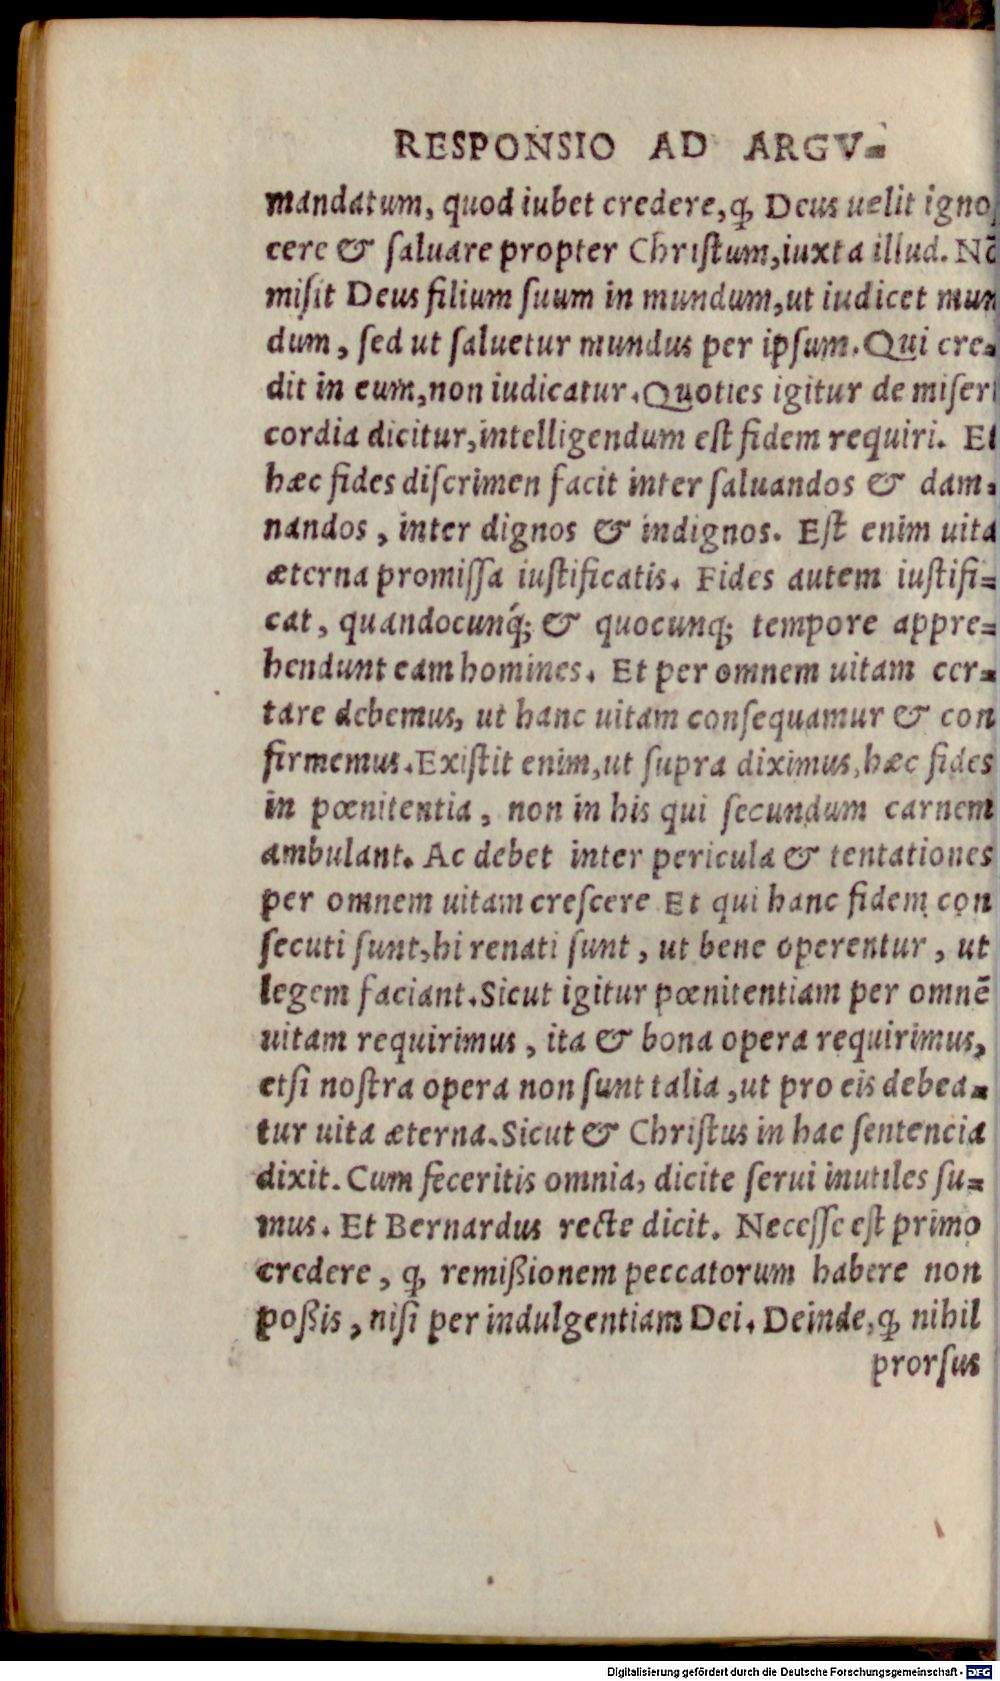 RESPONSIO AD ARGV-
mandatum, quod iubet credere, ꝙ Deus uelit igno
cere & saluare propter Christum, iuxta illud. Nō
misit Deus filium suum in mundum, ut iudicet mun
dum, sed ut saluetur mundus per ipsum. Qui cre-
dit in eum, non iudicatur. Quoties igitur de miseri
cordia dicitur, intelligendum est fidem requiri. Et
hæc fides discrimen facit inter saluandos & dam-
nandos, inter dignos & indignos. Est enim uita
æterna promissa iustificatis. Fides autem iustifi-
cat, quandocunq́; & quocunq; tempore appre-
hendunt eam homines. Et per omnem uitam cer-
tare debemus, ut hanc uitam consequamur & con
firmemus. Existit enim, ut supra diximus, hæc fides
in pœnitentia, non in his qui secundum carnem
ambulant. Ac debet inter pericula & tentationes
per omnem uitam crescere Et qui hanc fidem con
secuti sunt, hi renati sunt, ut bene operentur, ut
legem faciant. Sicut igitur pœnitentiam per omnē
uitam requirimus, ita & bona opera requirimus,
etsi nostra opera non sunt talia, ut pro eis debea-
tur uita æterna. Sicut & Christus in hac sentencia
dixit. Cum feceritis omnia, dicite serui inutiles su-
mus. Et Bernardus recte dicit. Necesse est primo
credere, ꝙ remißionem peccatorum habere non
poßis, nisi per indulgentiam Dei. Deinde, ꝙ nihil
prorsus
Digitalisierung gefördert durch die Deutsche Forschungsgemeinschaft - DFG